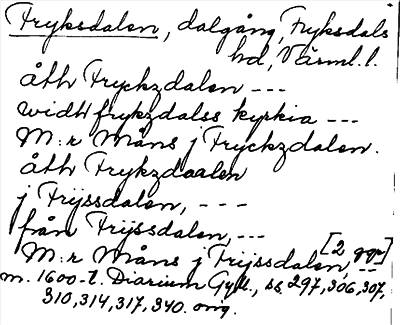 Fryksdalen, dalgång, Fryksdals
hd, Värml.l.
åth Fryckzdalen ---
widh frykzdalss kyrkia ---
M:r Måns j Fryckzdalen.
åth Frykzdaalen
j Frijssdalen, ---
från Frijssdalen, ---
[2 ggr]
M:r Måns j Frijssdalen, --
m. 1600-t. Diarium Gyll., ss 297, 306, 307,
310, 314, 317, 340. orig.